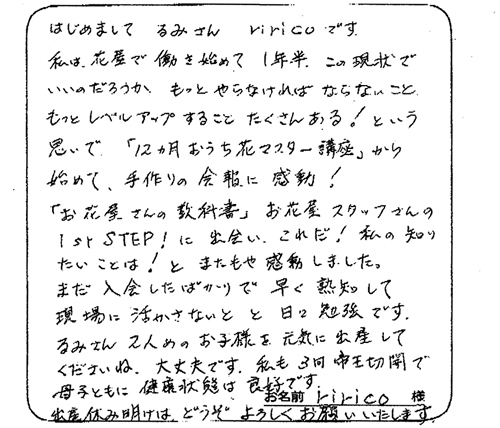 はじめまして るみさん ririco です
私は、花屋で働き始めて 1年半 この現状で
いいのだろうか、もっとやらなければ ならないこと
もっとレベルアップすること たくさんある！という
思いで、「12ヵ月おうち花マスター講座」から
始めて、手作りの会報に感動！
「お花屋さんの教科書」お花屋スタッフさんの
1st STEP！に出会い、これだ！私の知り
たいことは！と またもや感動しました。
まだ入会したばかりで 早く熟知して
現場に活かさないと と 日々勉強です。
るみさん 2人めのお子様を元気に出産して
くださいね。大丈夫です。私も3回 帝王切開で
母子ともに健康状態は良好です。
お名前 ririco 様
出産休み明けは、どうぞ よろしくお願いいたします